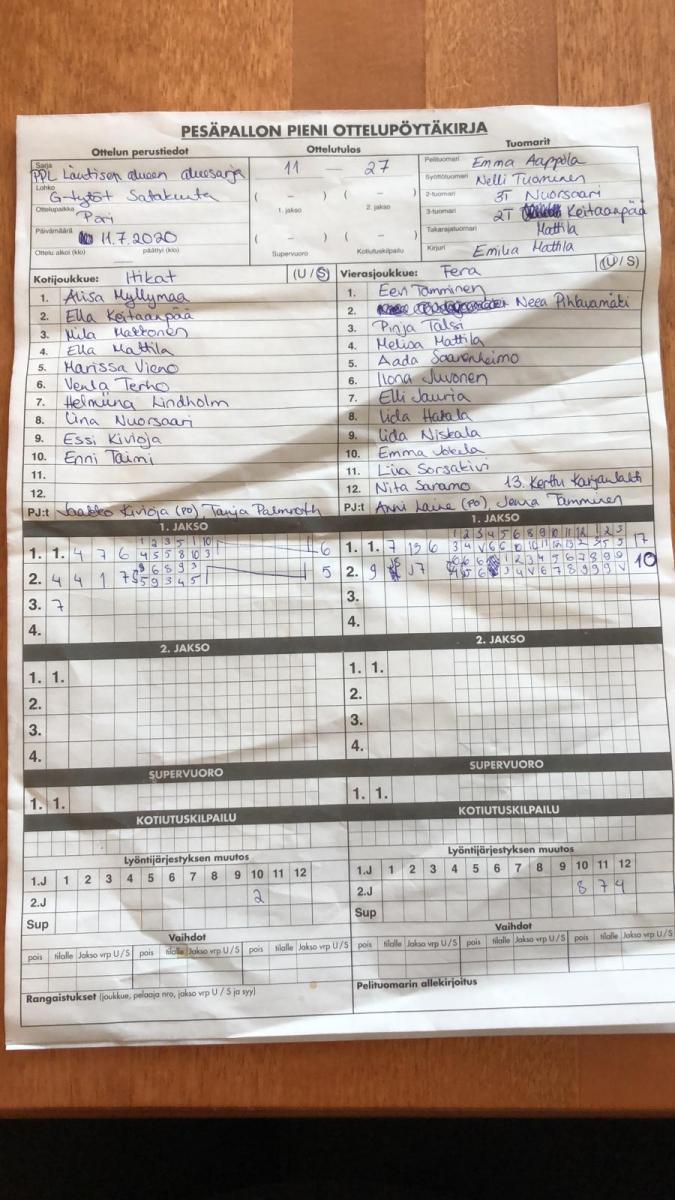 PESÄPALLON PIENI OTTELUPÖYTÄKIRJA
Ottelun perustiedot
Ottelutulos
Tuomarit
Sarja
PPL Läntisen alueen aluesarja
Lohko
G-tytöt Satakunta
Ottelupaikka
Pori
Päivämäärä
11.7.2020
Ottelu alkoi (klo) päättyi (klo)
11 — 27
( – ) ( – )
1. jakso 2. jakso
( – ) ( – )
Supervuoro Kotiutuskilpailu
Pelituomari Emma Aappola
Syöttötuomari Nelli Tuominen
2-tuomari 3T Nuorsaari
3-tuomari 2T Keitaanpää
Takarajatuomari Mattila
Kirjuri Emilia Mattila
Kotijoukkue: Itikat (U / S)
1. Alisa Myllymaa
2. Ella Keitaanpää
3. Mila Makkonen
4. Ella Mattila
5. Marissa Vieno
6. Venla Terho
7. Helmiina Lindholm
8. Liina Nuorsaari
9. Essi Kivioja
10. Enni Taimi
11.
12.
PJ:t Jaakko Kivioja (PO) Tanja Palmroth
Vierasjoukkue: Fera (U / S)
1. Eevi Tamminen
2. Neea Pihlavamäki
3. Pinja Talsi
4. Melisa Mattila
5. Aada Saarenheimo
6. Ilona Juvonen
7. Elli Jauria
8. Iida Hakala
9. Iida Niskala
10. Emma Jokela
11. Liva Sorsakivi
12. Nita Saramo 13. Kerttu Karjanlahti
PJ:t Anni Laine (PO) Jenna Tamminen
1. JAKSO
1. 1. 4 7 6
1 2 3 5 1 10
4 5 5 8 10 3
6
2. 4 4 1 7
5 9 3 4 5
5
3. 7
4.
2. JAKSO
1. 1.
2.
3.
4.
SUPERVUORO
1. 1.
KOTIUTUSKILPAILU
Lyöntijärjestyksen muutos
1.J 1 2 3 4 5 6 7 8 9 10 11 12
2.J 2
Sup
Vaihdot
pois tilalle Jakso vrp U / S pois tilalle Jakso vrp U / S pois tilalle Jakso vrp U / S
Rangaistukset (joukkue, pelaaja nro, jakso vrp U / S ja syy)
1. JAKSO
1. 1. 7 13 6
1 2 3 4 5 6 8 9 10 11 12 1 2 3
3 4 V 6 6 10 10 11 12 13 2 3 5 5
17
2. 9 17
1 2 3 4 5 6 7 8 9 9
3 4 V 6 7 8 9 9 9 V
10
3.
4.
2. JAKSO
1. 1.
2.
3.
4.
SUPERVUORO
1. 1.
KOTIUTUSKILPAILU
Lyöntijärjestyksen muutos
1.J 1 2 3 4 5 6 7 8 9 10 11 12
2.J 8 7 4
Sup
Vaihdot
pois tilalle Jakso vrp U / S pois tilalle Jakso vrp U / S pois tilalle Jakso vrp U / S
Pelituomarin allekirjoitus